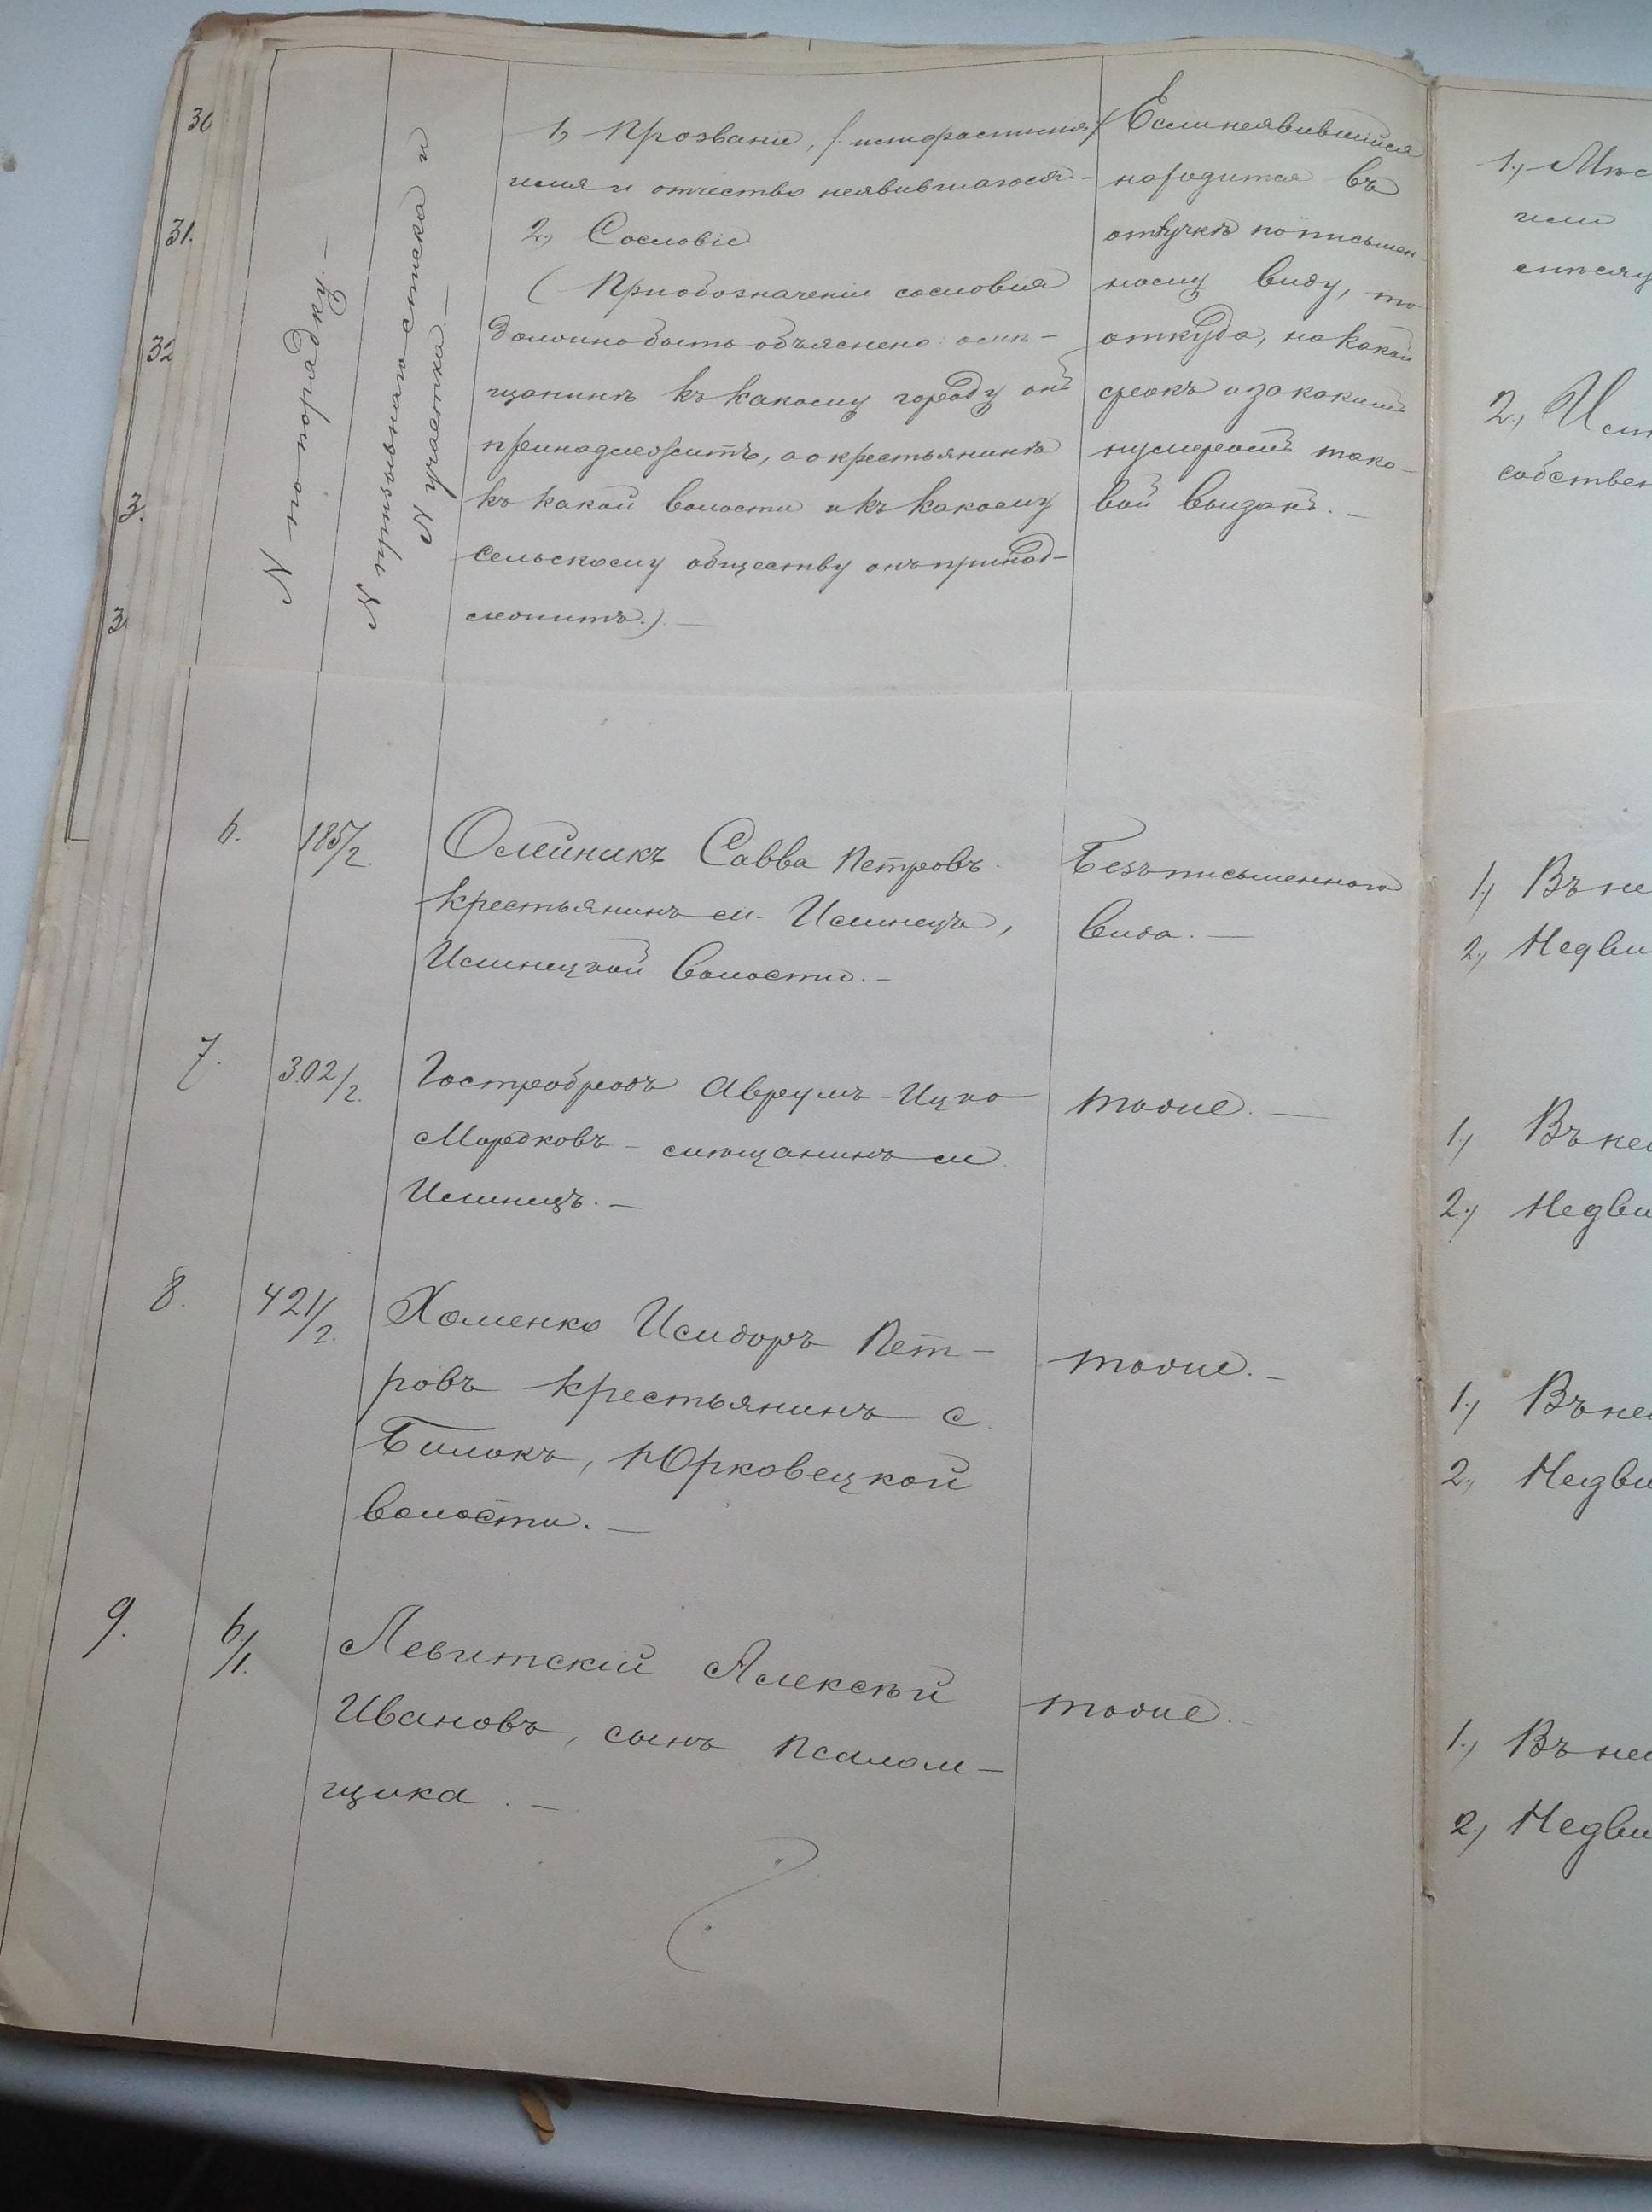 30
31.
32
3.
3
№ по порядку. —
№ призывнаго списка и
№ участка —
1, Прозваніе, (или фамилия)
имя и отчество неявившагося —
2, Сословіе
(При обозначеніи сословія
должно быть объяснено: мѣ—
щанинъ къ какому городу онъ
принадлежитъ, а о крестьянинѣ
къ какой волости и къ какому
сельскому обществу онъ принад—
лежитъ.). —
Если неявившійся
находится въ
отлучкѣ по письмен
ному виду, то
откуда, на какой
срокъ и за какимъ
нумеромъ тако—
вой выданъ. —
1., Мѣс
или
2., Им
собствен
6.
185/2.
Олейникъ Савва Петровъ
крестьянинъ м. Ильинецъ,
Ильинецкой волости. —
Безъ письменнаго
вида. —
1., Въ не
2., Недви
7.
302/2.
Гостробродъ Аврумъ-Ицко
Мордковъ — мѣщанинъ м.
Ильинецъ. —
тоже. —
1., Въ не
2., Недви
8.
421/2.
Хоменко Исидоръ Пет—
ровъ крестьянинъ с.
Билокъ, Юрковецкой
волости. —
тоже. —
1., Въ не
2., Недви
9.
6/1.
Левитскій Алексѣй
Ивановъ, сынъ псалом—
щика. —
тоже. —
1., Въ не
2., Недви